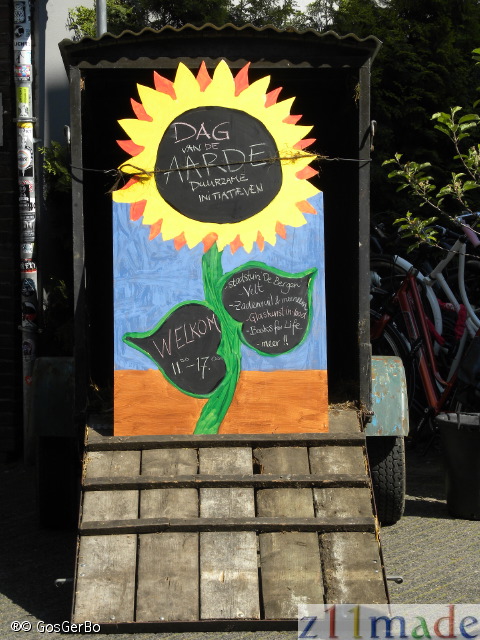 DAG
VAN DE
AARDE
DUURZAME
INITIATIEVEN
WELKOM
11⁰⁰-17.⁰⁰
-stadstuin De Bergen
Vilt
-Zadenruil &
-Glaskunst in
-Books for Life
-meer !!
® GosGerBo
z11made